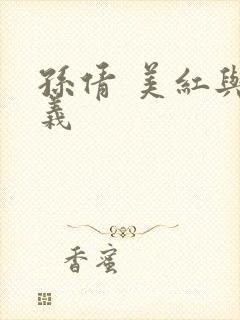 孫倩 美紅與
義
香蜜